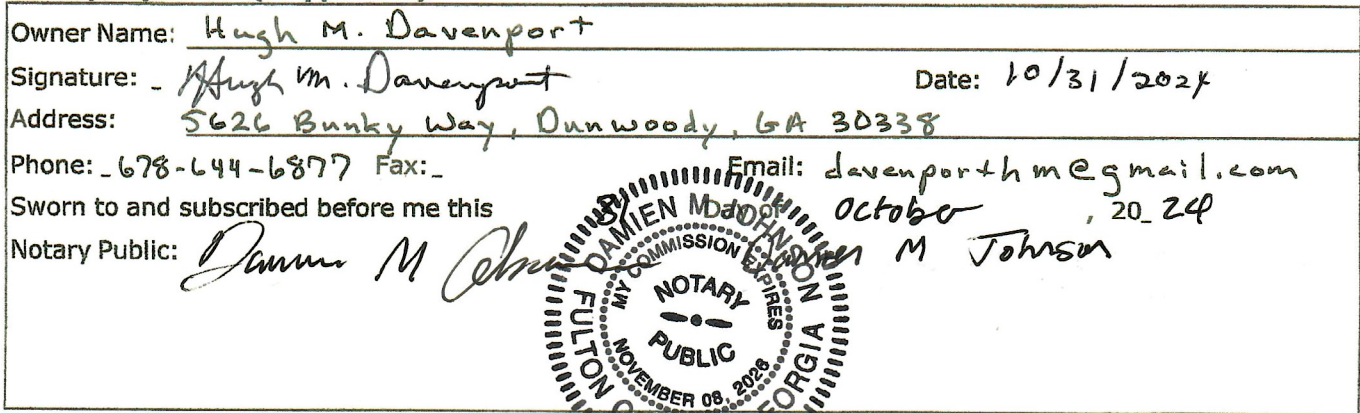 Owner Name: Hugh M. Davenport
Signature: Hugh M. Davenport Date: 10/31/2024
Address: 5626 Bunky Way, Dunwoody, GA 30338
Phone: 678-644-6877 Fax: Email: davenporthm@gmail.com
Sworn to and subscribed before me this 31 Day of October, 2024
Notary Public: Damien M Johnson Damien M Johnson
DAMIEN M JOHNSON
MY COMMISSION EXPIRES
NOTARY
PUBLIC
NOVEMBER 08, 2026
FULTON GEORGIA